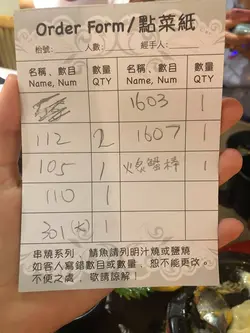 Order Form/點菜紙
枱號： 人數： 經手人：
名稱、數目 數量 名稱、數目 數量
Name, Num QTY Name, Num QTY
1603 1
112 2 1607 1
105 1 火焰蟹棒 1
110 1
301(大) 1
串燒系列、鯖魚請列明汁燒或鹽燒
如客人寫錯數目或數量，恕不能更改。
不便之處，敬請諒解！